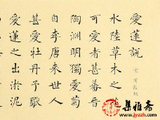 愛蓮說
水陸草木之
可愛者甚蕃
陶淵明獨愛菊
自李唐來世人
甚愛牡丹予獨
愛蓮之出淤泥
集福斋